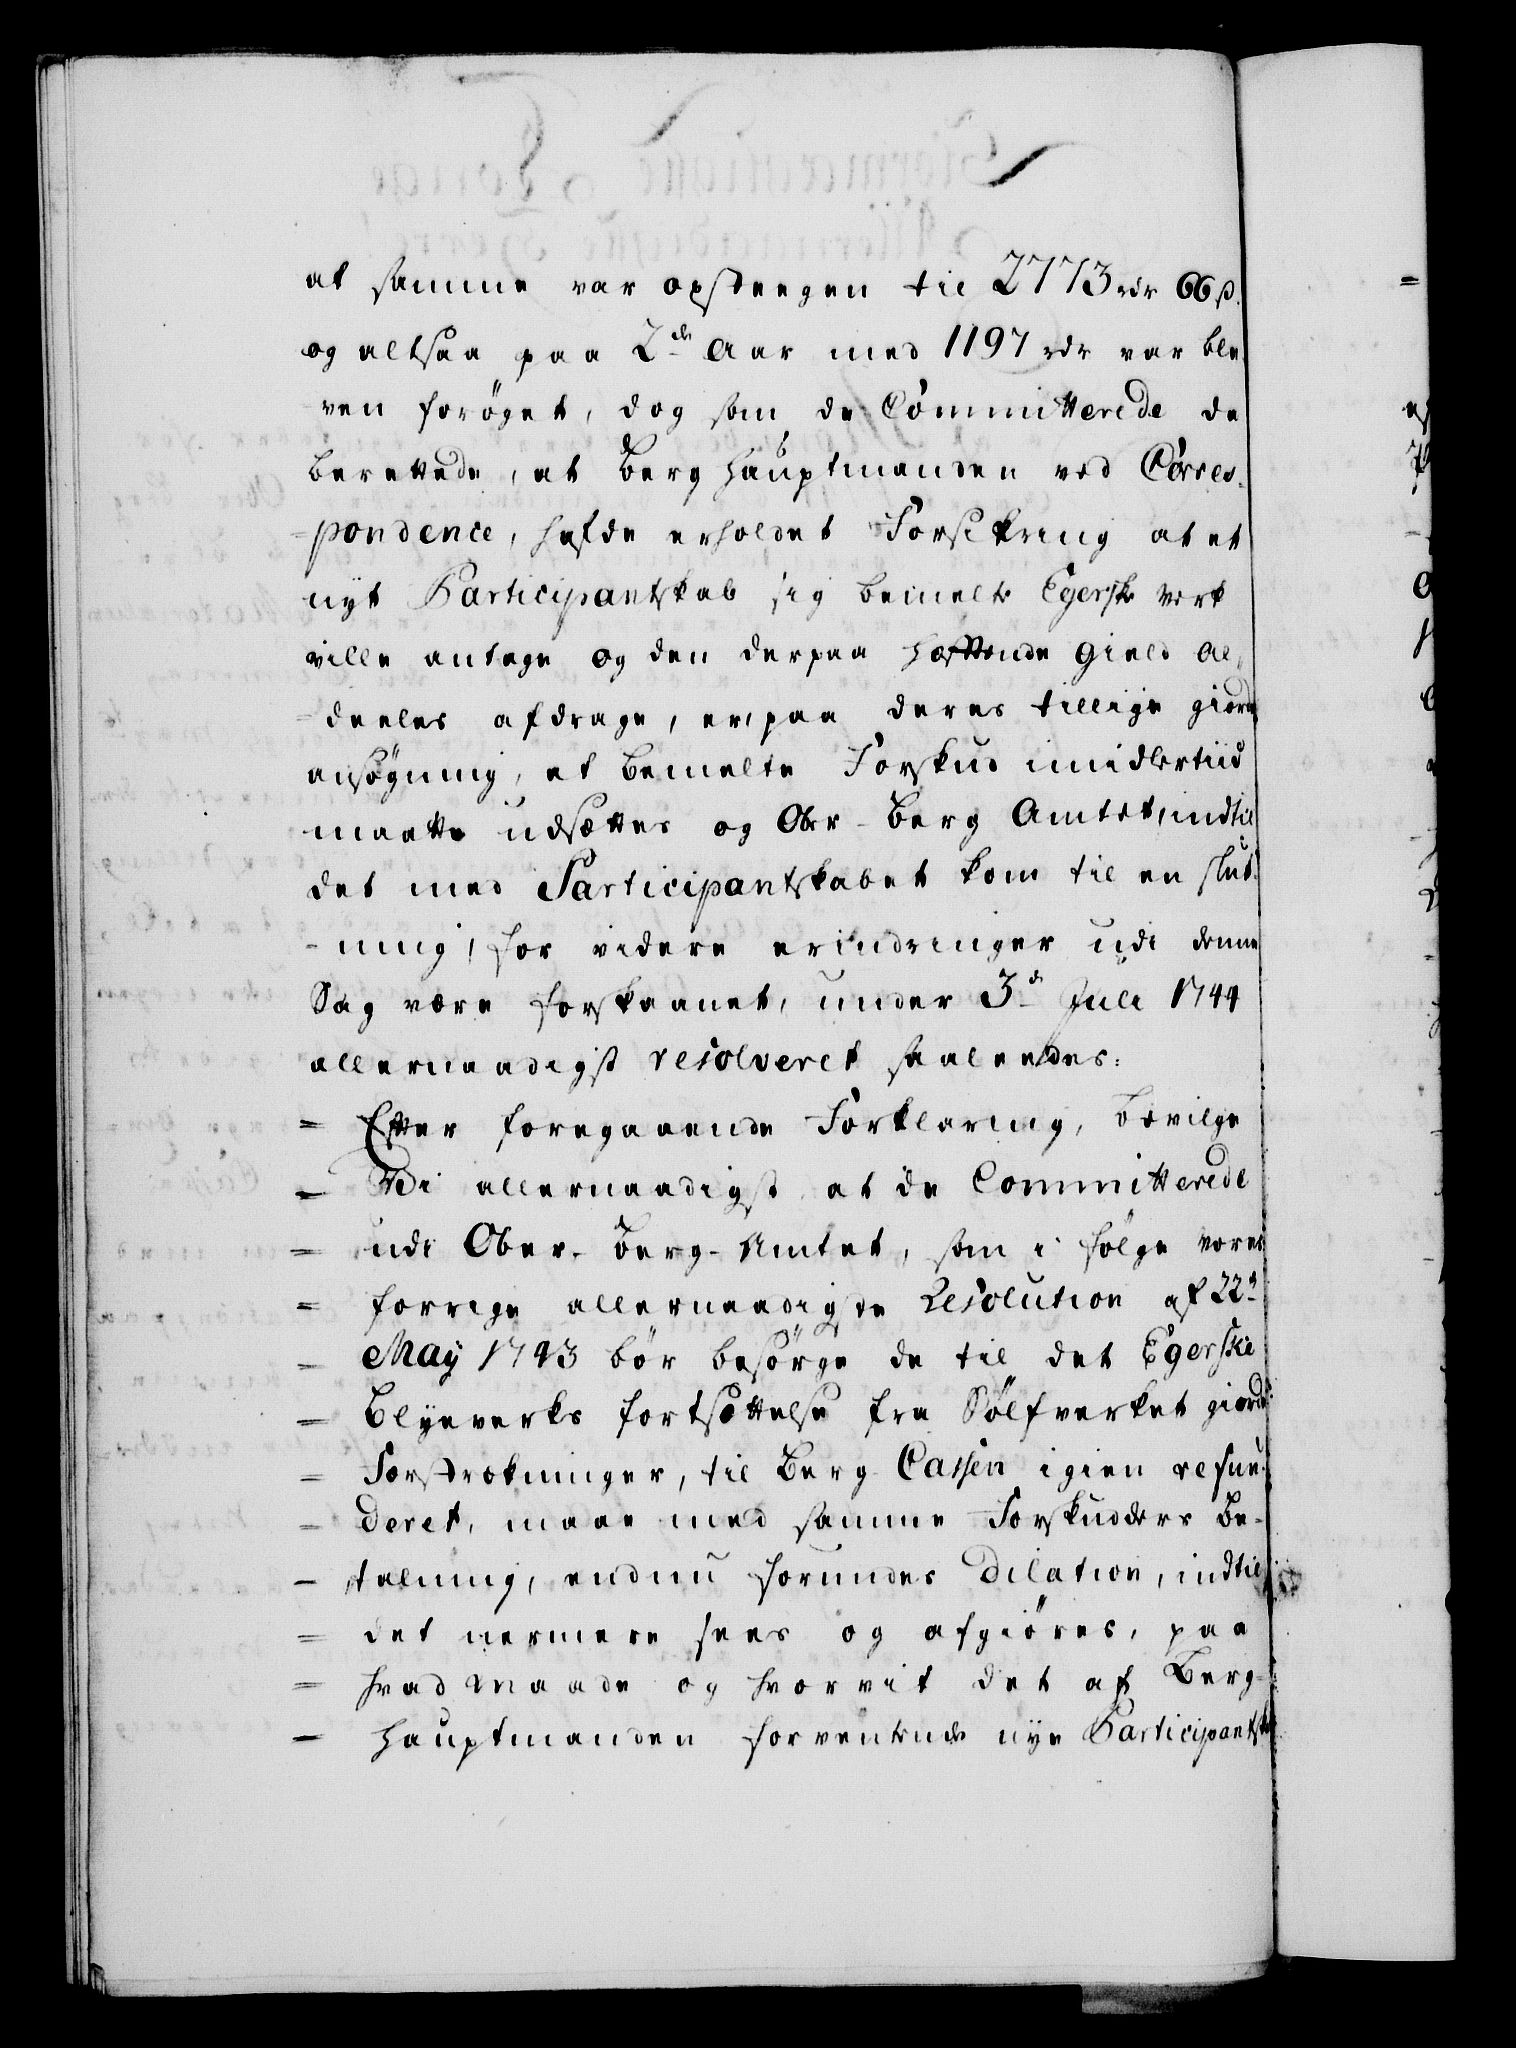 at samme var opsteegen til 2773 rdr 66 ß.
og altsaa paa 2de Aar med 1197 rdr var ble
ven forøget, dog som de Committerede de
berettede, at Berg Hauptmanden ved Corres-
-pondence, hafde erholdet Forsikring at et
nyt Participantskab sig bemelte Egerske Verk
ville antage og den derpaa hæftende Gield al-
-deeles afdrage, er, paa deres tillige giorde
ansøgning, at bemelte Forskud imidlertiid
maatte udsættes og Ober-Berg Amtet, indtil
det med Participantskabet kom til en slut-
-ning, for videre erindringer udi denne
Sag være forskaanet, under 3de Juli 1744
allernaadigst resolveret saaleedes:
= Efter foregaaende Forklaring, bevilge
= Vi allernaadigst at de Committerede
= udi Ober-Berg-Amtet, som i følge vores
= forrige allernaadigste Resolution af 22de
= May 1743 bør besørge de til det Egerske
= Blyeverks fortsættelse fra Sølfverket giorde
= Forstrækninger, til Berg-Cassen igien refun-
= deret, maae med samme Forskudders be-
= talning, endnu forundes Dilation, indtil
= det nermere sees og afgiøres, paa
= hvad Maade og hvorvit det af Berg-
= Hauptmanden forventende nye Participantskab